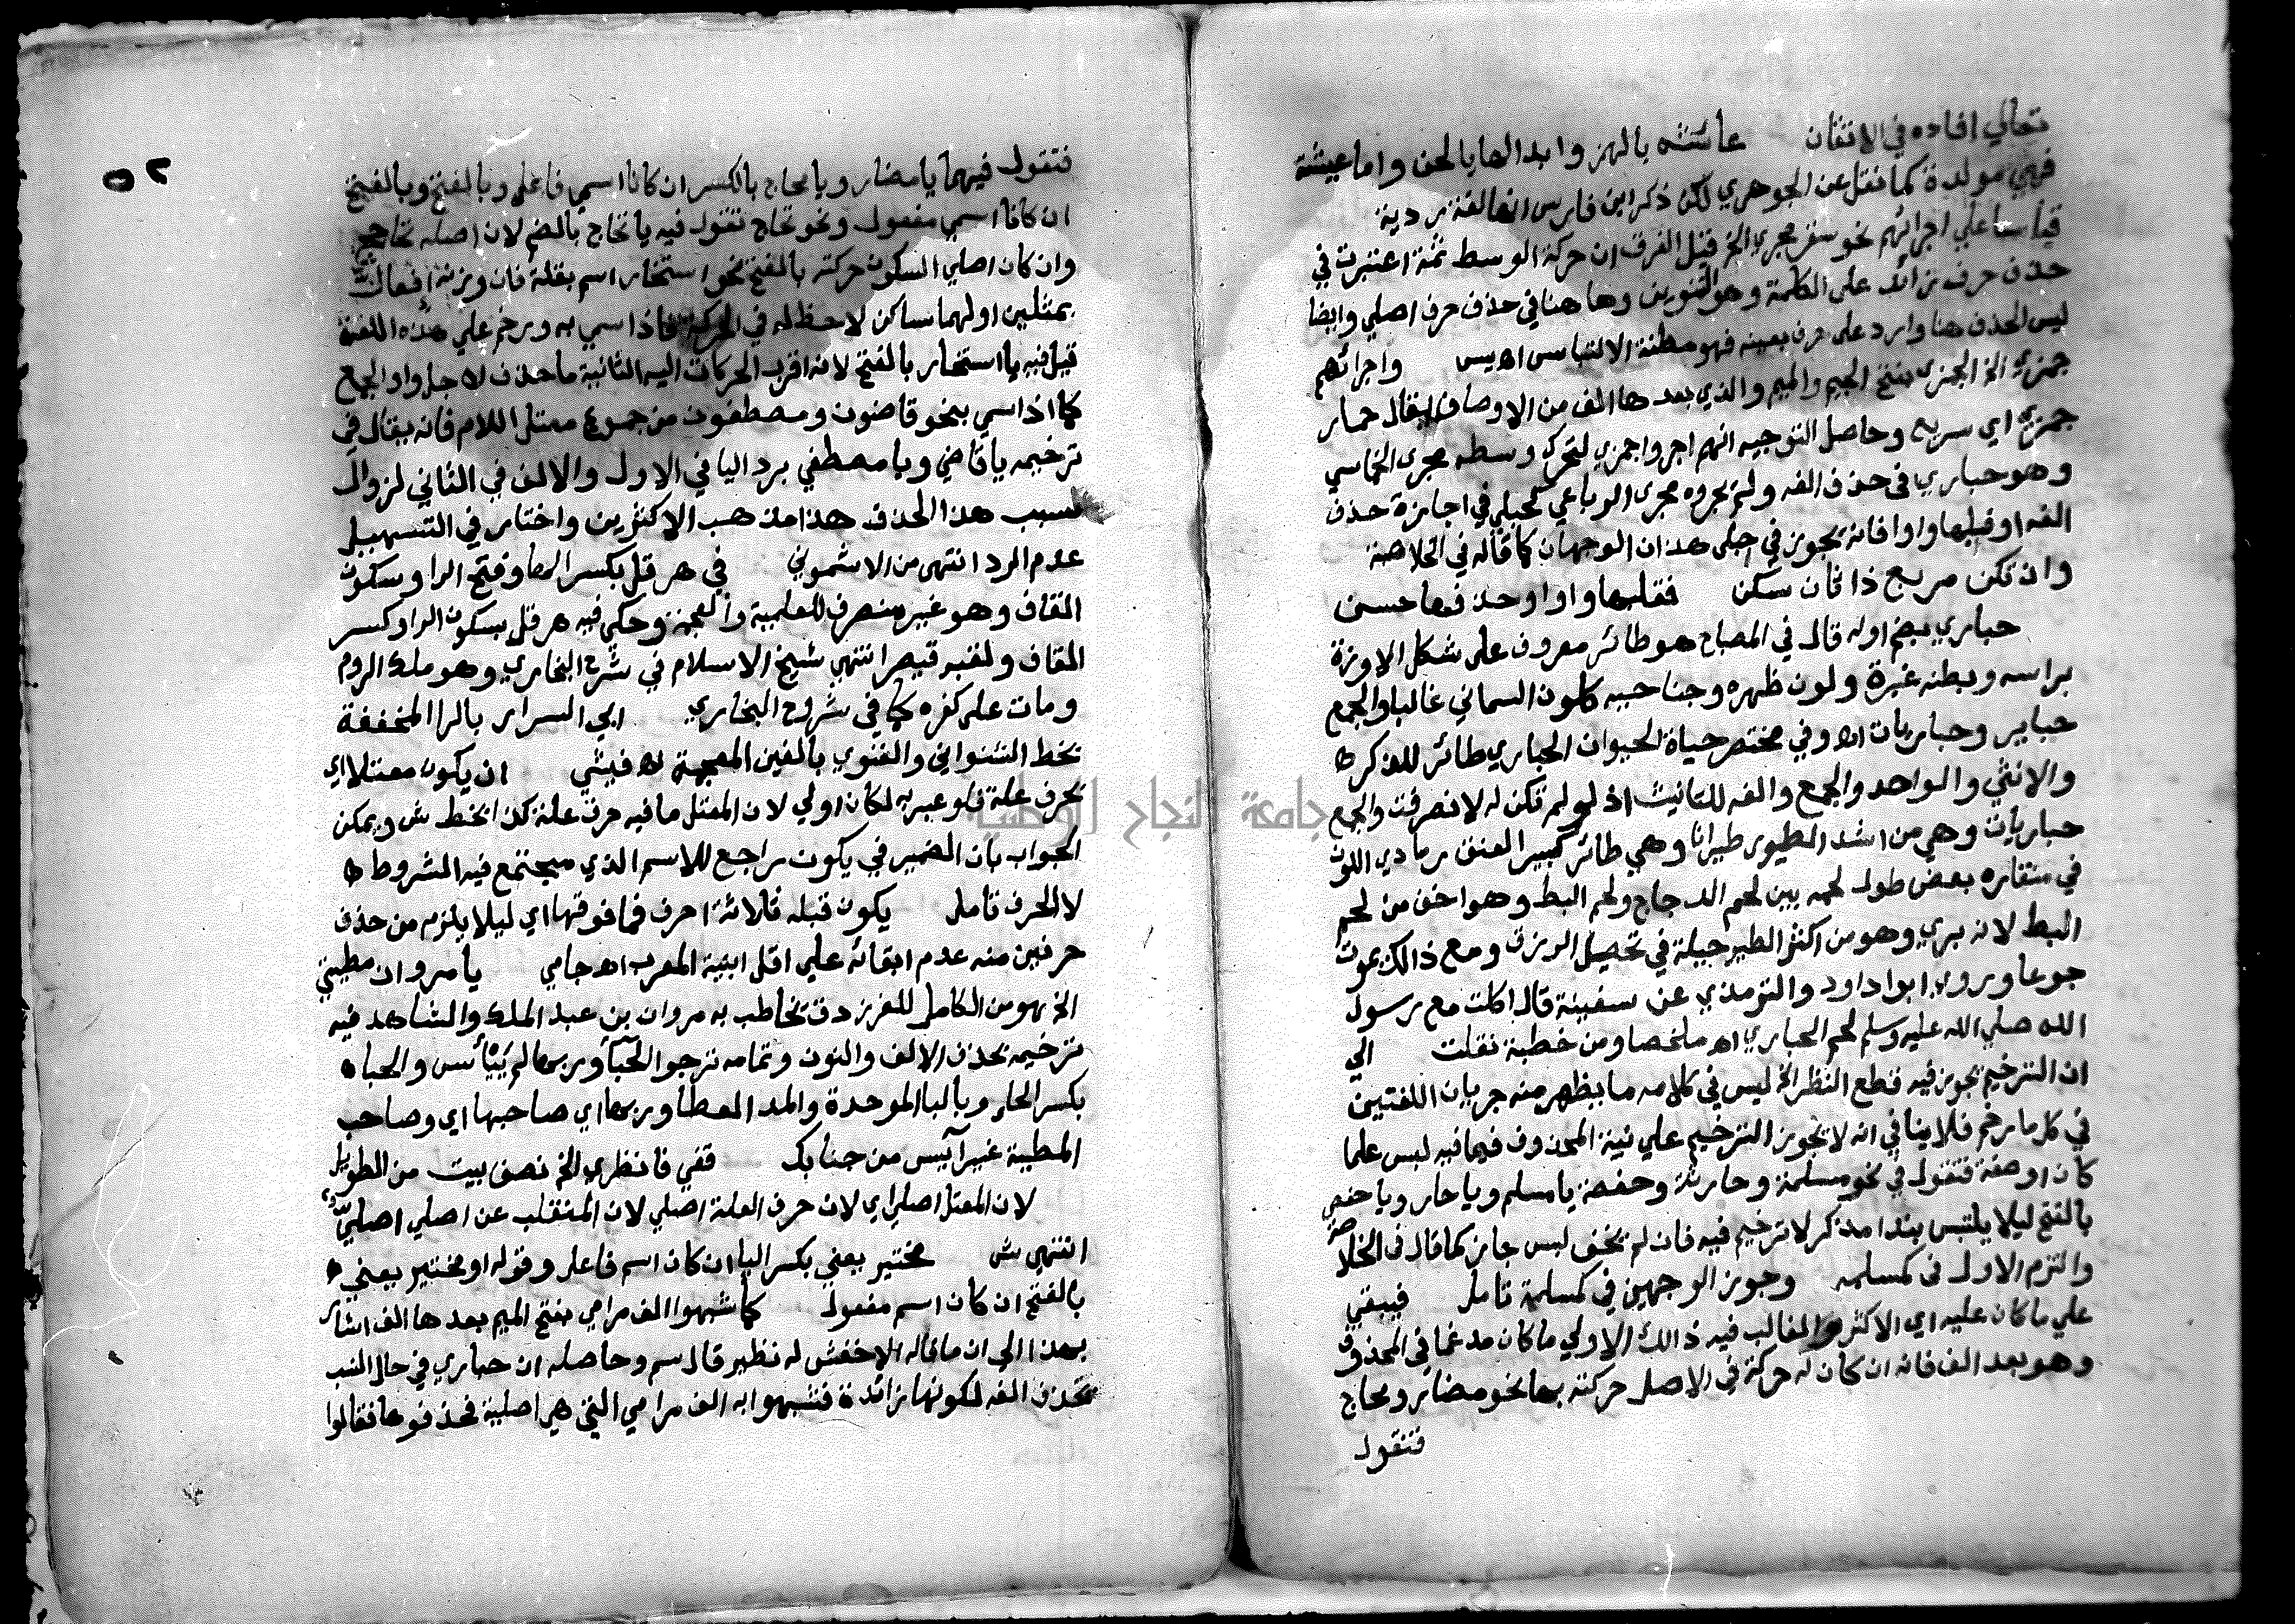 تعالي افاده في الاتقان عائشه بالهمز وابدالها يا لحن واما عيشة
فهي مولدة كما نقل عن الجوهري لكن ذكر ابن فارس انها لغة ردية
قياسا علي اجرائهم نحو سقر مجري الخ قيل الفرق ان حركة الوسط ثمة اعتبرت في
حذف حرف زائد على الكلمة وهو التنوين وهاهنا في حذف حرف اصلي وايضا
ليس الحذف هنا وارد على حرف بعينه فهو مظنة الالتباس اه يس واجرائهم
جمزي الخ الجمزي بفتح الجيم والميم والذي بعدها الف من الاوصاف يقال حمار
جمزي اي سريع وحاصل التوجيه انهم اجروا جمزي لتحرك وسطه مجري الخماسي
وهو حباري في حذف الفه ولم يجروه مجري الرباعي كحبلي في اجازة حذف
الفه او قلبها واوا فانه يجوز في حبلى هذان الوجهان كما قاله في الخلاصة
وان تكن مربع ذا ثان سكن فقلبها واوا وحذفها حسن
حباري بضم اوله قال في المصباح هو طائر معروف على شكل الاوزة
براسه وبطنه غبرة ولون ظهره وجناحيه كلون السماني غالبا والجمع
حبابير وحباريات اه وفي مختصر حياة الحيوان الحباري طائر للذكر
والانثي والواحد والجمع والفه للتانيث اذ لو لم تكن له لانصرفت والجمع
حباريات وهي من اشد الطيور طيرانا وهي طائر كبير العنق رمادي اللون
في منقاره بعض طول لحمه بين لحم الدجاج ولحم البط وهو اخف من لحم
البط لانه بري وهو من اكثر الطير حيلة في تحصيل الرزق ومع ذالك يموت
جوعا وروي ابوا داود والترمذي عن سفينة قال اكلت مع رسول
الله صلي الله عليه وسلم لحم الحباري اه ملخصا ومن خطبة نقلت الي
ان الترخيم يجوز فيه قطع النظر الخ ليس في كلامه ما يظهر منه جريان اللغتين
في كل ما رخم فلا ينافي انه لا يجوز الترخيم علي نية المحذوف فيما فيه لبس علما
كان او صفة فتقول في نحو مسلمة وحارثة وحفصة يا مسلم ويا حار ويا حفص
بالفتح ليلا يلتبس بندا مذكر لا ترخيم فيه فان لم يخف لبس جاز كما قال في الخلاصة
والتزم الاول في كمسلمه وجوز الوجهين في كمسلمة تامل فيبقي
علي ما كان عليه اي الاكثر والغالب فيه ذالك الاولي ما كان مدغما في المحذوف
وهو بعد الف فانه ان كان له حركة في الاصل حركته بها نحو مضار ومحاج
فتقول
٥٢
فتقول فيهما يا مضار ويا محاج بالكسر ان كانا اسمي فاعل وبالفتح وبالفتح
ان كانا اسمي مفعول ونحو تحاج تقول فيه يا تحاج بالضم لان اصله تحاجج
وان كان اصلي السكون حركته بالفتح نحو اسحار اسم بقلة فان وزنه افعال
بمثلين اولهما ساكن لا حظ له في الحركة فاذا سمي به ورخم علي هذه اللغة
قيل فيه يا اسحار بالفتح لانه اقرب الحركات اليه الثانية ما حذف لاجل واو الجمع
كما اذا سمي بنحو قاضون ومصطفون من جموع معتل اللام فانه يقال في
ترخيمه يا قاضي ويا مصطفي برد اليا في الاول والالف في الثاني لزوال
سبب هذا الحذف هذا مذهب الاكثرين واختار في التسهيل
عدم الرد انتهى من الاشموني في هرقل بكسر الها وفتح الرا وسكون
القاف وهو غير منصرف للعلمية والعجمة وحكي فيه هرقل بسكون الرا وكسر
القاف ولقبه قيصر انتهي شيخ الاسلام في شرح البخاري وهو ملك الروم
ومات على كفره كما في شروح البخاري ابي السرار بالرا المخففة
بخط الشنواني والغنوي بالغين المعجمة اه فيشي ان يكون معتلا اي
بحرف علة فلو عبر به لكان اولي لان المعتل ما فيه حرف علة كذا بخط ش ويمكن
الجواب بان الضمير في يكون راجع للاسم الذي سيجتمع فيه المشروط
لا للحرف تامل يكون قبله ثلاثة احرف فما فوقها اي ليلا يلزم من حذف
حرفين منه عدم ابقائه علي اقل ابنية المعرب اه جامي يا مرو ان مطيتي
الخ هو من الكامل للفرزدق تخاطب به مروان بن عبد الملك والشاهد فيه
ترخيمه بحذف الالف والنون وتمامه ترجو الحبا وربها لم ييأس والحباه
بكسر الحاء وبالبا الموحدة والمد العطا وربها اي صاحبها اي وصاحب
المطية غير آيس من جنابك قفي فانظري الخ نصف بيت من الطويل
لان المعتل اصلي اي لان حرف العلة اصلي لان المنقلب عن اصلي اصلي
انتهى ش مختير يعني بكسر اليا ان كان اسم فاعل وقوله او مختير يعني
بالفتح ان كان اسم مفعول كما شبهوا الف مرامي بفتح الميم بعدها الف اشار
بهذا الي ان ما قاله الاخفش له نظير قال سم وحاصله ان حباري في حال النسب
تحذف الفه لكونها زائدة فشبهوا به الف مرامي التي هي اصلية فحذفوها فقالوا
جامعة النجاح الوطنية